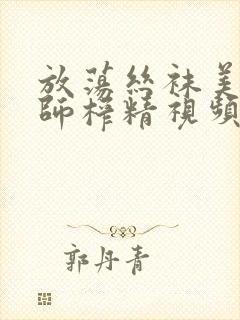 放蕩絲袜美
師榨精視頻
郭丹青